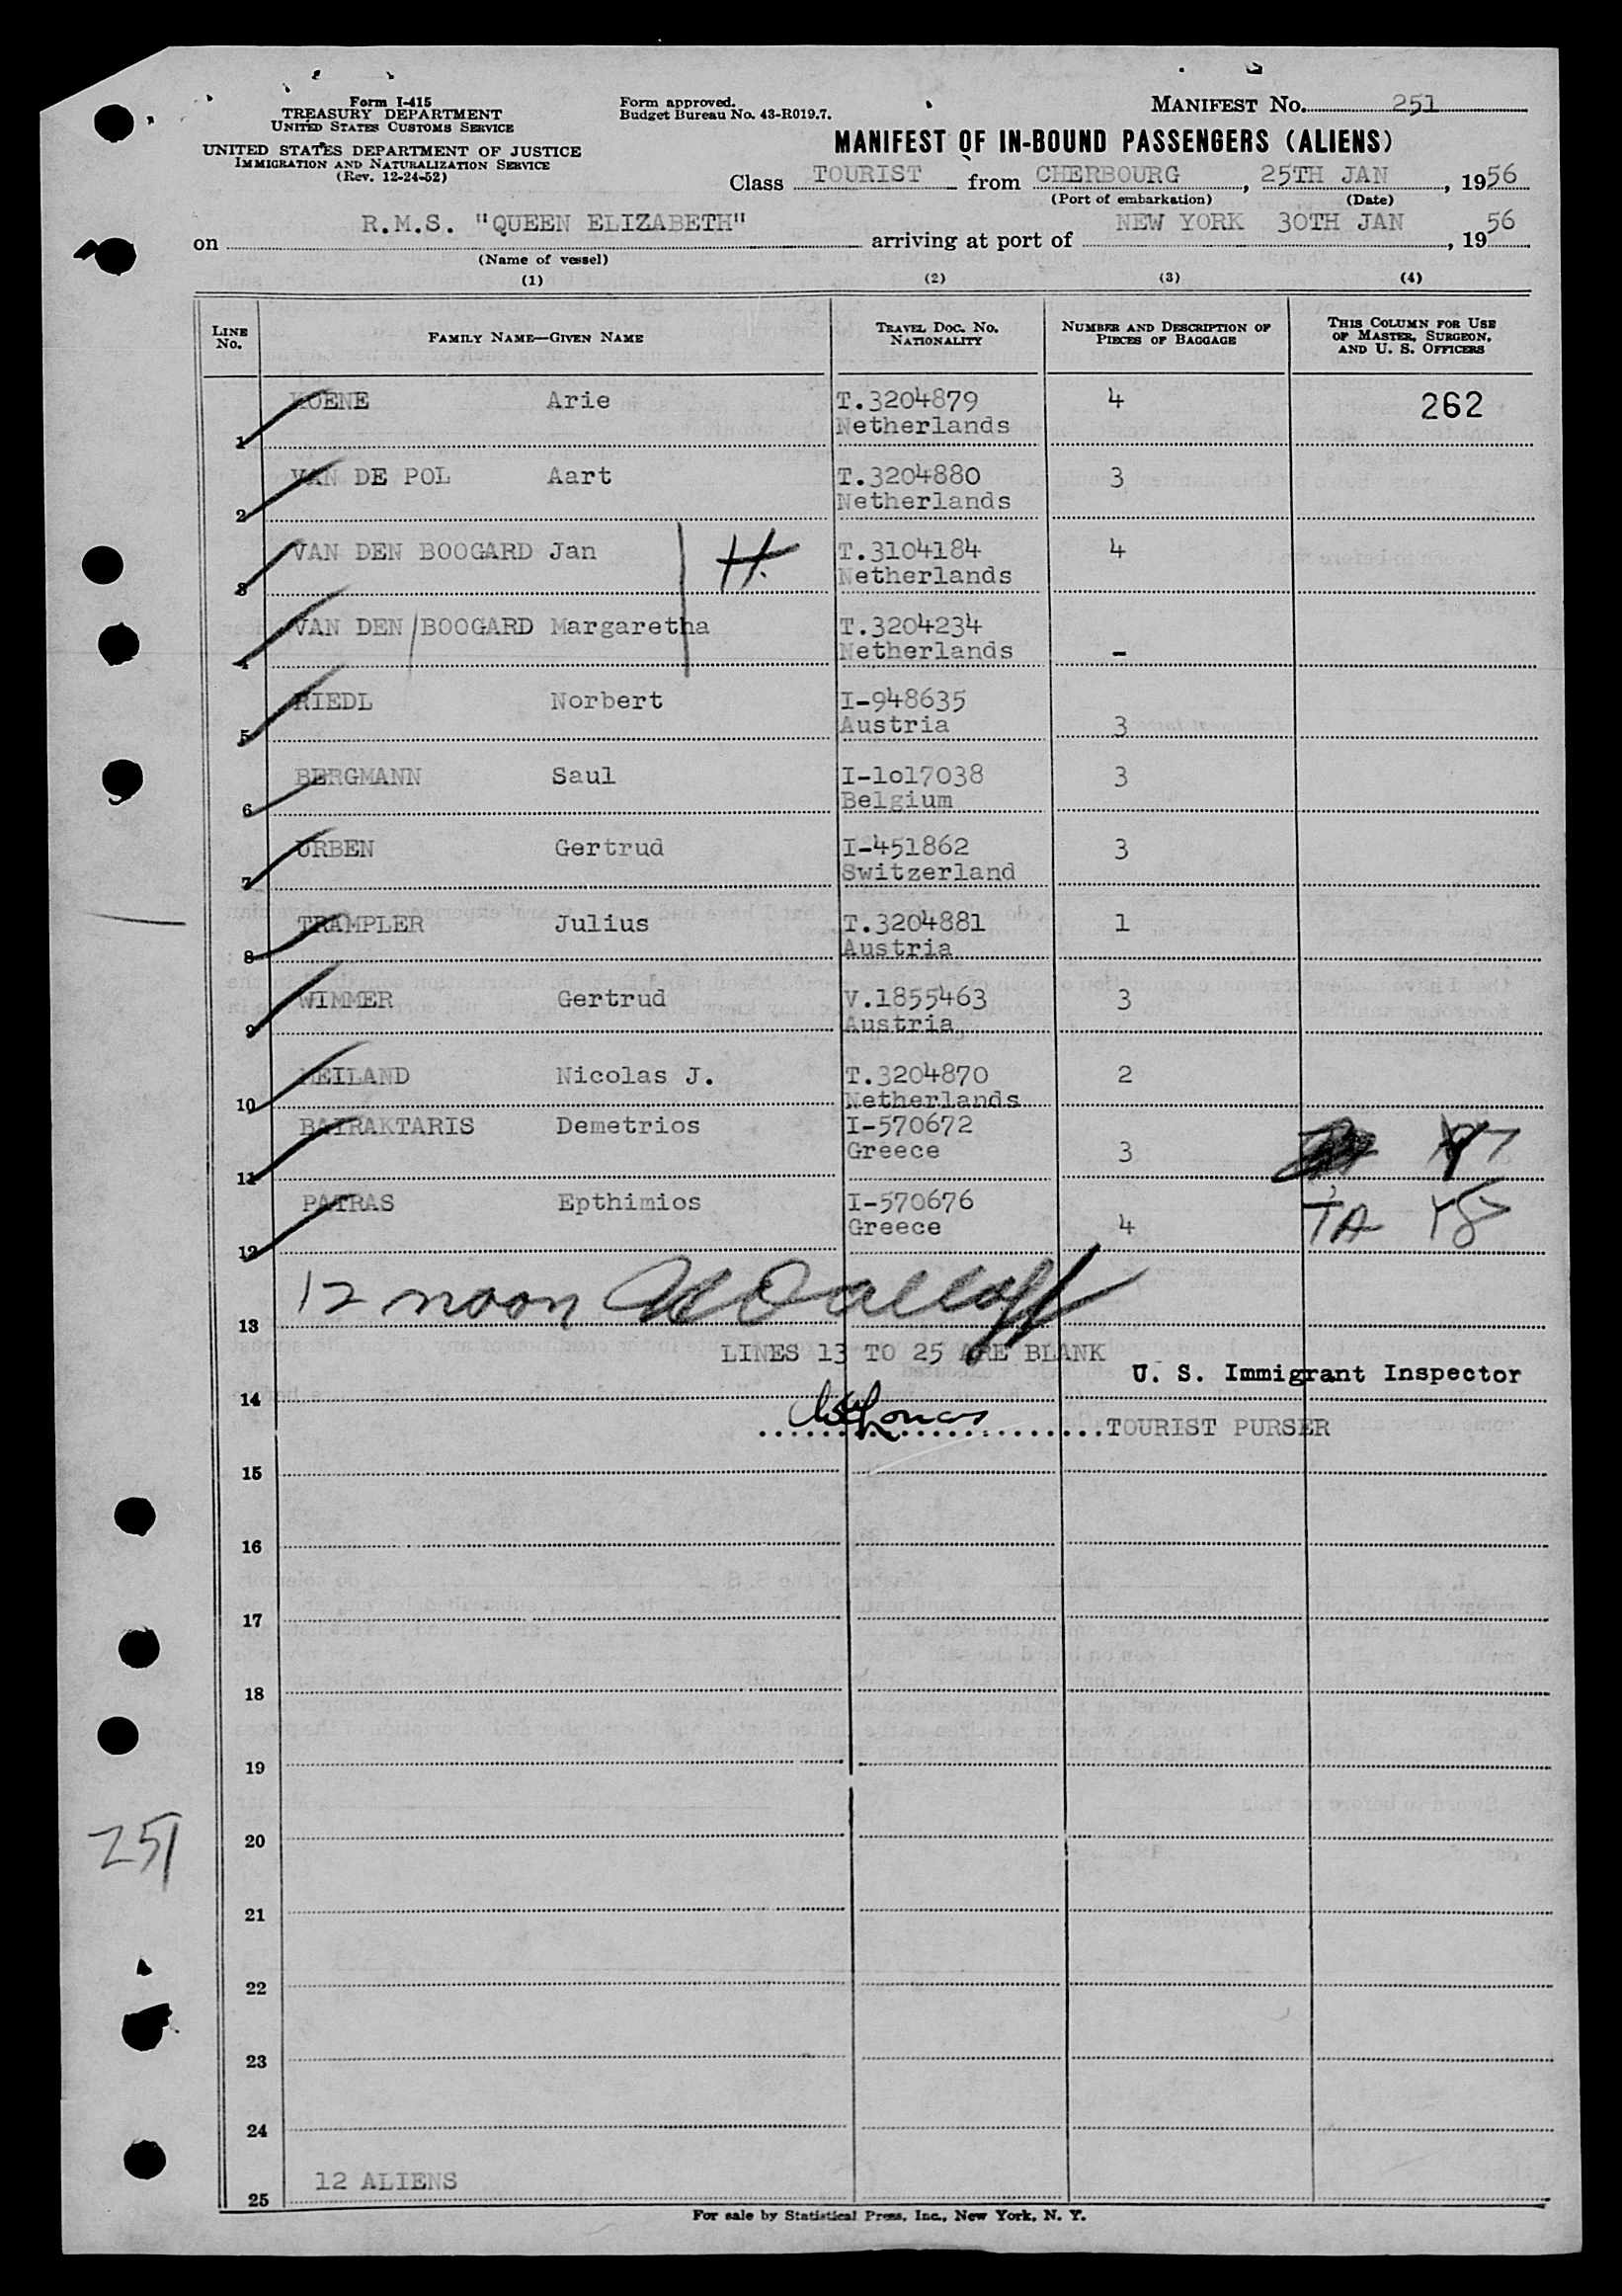 Form I-415
TREASURY DEPARTMENT
UNITED STATES CUSTOMS SERVICE
UNITED STATES DEPARTMENT OF JUSTICE
IMMIGRATION AND NATURALIZATION SERVICE
(Rev. 12-24-52)
Form approved.
Budget Bureau No. 43-R019.7.
MANIFEST No. 251
MANIFEST OF IN-BOUND PASSENGERS (ALIENS)
Class TOURIST from CHERBOURG, 25TH JAN, 1956
(Port of embarkation) (Date)
on R.M.S. "QUEEN ELIZABETH" arriving at port of NEW YORK 30TH JAN, 1956
(Name of vessel)
(1) (2) (3) (4)
LINE No. FAMILY NAME—GIVEN NAME TRAVEL DOC. No. NATIONALITY NUMBER AND DESCRIPTION OF PIECES OF BAGGAGE THIS COLUMN FOR USE OF MASTER, SURGEON, AND U. S. OFFICERS
1 KOENE Arie T.3204879 4 262
Netherlands
2 VAN DE POL Aart T.3204880 3
Netherlands
3 VAN DEN BOOGARD Jan H. T.3104184 4
Netherlands
4 VAN DEN BOOGARD Margaretha T.3204234
Netherlands -
5 RIEDL Norbert I-948635
Austria 3
6 BERGMANN Saul I-1o17038 3
Belgium
7 URBEN Gertrud I-451862 3
Switzerland
8 TRAMPLER Julius T.3204881 1
Austria
9 WIMMER Gertrud V.1855463 3
Austria
10 MEILAND Nicolas J. T.3204870 2
Netherlands
11 BAIRAKTARIS Demetrios I-570672
Greece 3
12 PATRAS Epthimios I-570676
Greece 4 TA
13 12 noon
LINES 13 TO 25 ARE BLANK
U. S. Immigrant Inspector
14
TOURIST PURSER
15
16
17
18
19
20
251
21
22
23
24
25 12 ALIENS
For sale by Statistical Press, Inc., New York, N. Y.